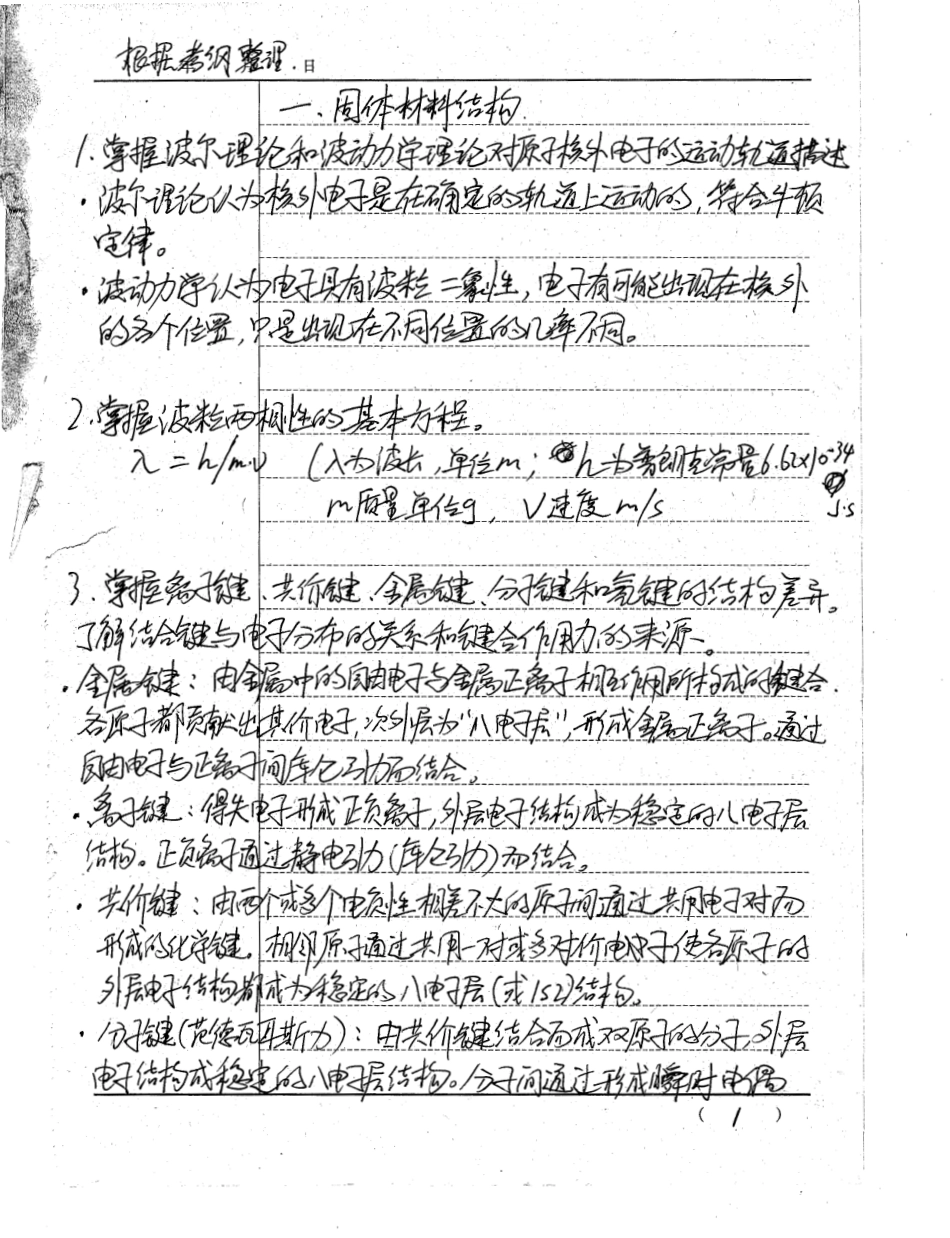 根据考纲整理.日
一、固体材料结构.
1.掌握波尔理论和波动力学理论对原子核外电子的运动轨道描述
·波尔理论认为核外电子是在确定的轨道上运动的,符合牛顿
定律。
·波动力学认为电子具有波粒二象性,电子有可能出现在核外
的各个位置,只是出现在不同位置的几率不同。
2.掌握波粒两相性的基本方程。
λ=h/m.v (λ为波长,单位m; h为普朗克常量6.62×10-34
J·S
m质量单位g, V速度m/s
3.掌握离子键、共价键、金属键、分子键和氢键的结构差异。
了解结合键与电子分布的关系和键合作用力的来源。
·金属键:由金属中的自由电子与金属正离子相互作用所构成的键合.
各原子都贡献出其价电子,次外层为"八电子层",形成金属正离子。通过
自由电子与正离子间库仑引力而结合。
·离子键:得失电子形成正负离子,外层电子结构成为稳定的八电子层
结构。正负离子通过静电引力(库仑引力)而结合。
·共价键:由两个或多个电负性相差不大的原子间通过共用电子对而
形成的化学键。相邻原子通过共用一对或多对价电子使各原子的
外层电子结构都成为稳定的八电子层(或1S2)结构。
·分子键(范德瓦耳斯力):由共价键结合而成双原子的分子,外层
电子结构成稳定的八电子层结构。分子间通过形成瞬时电偶
(1)